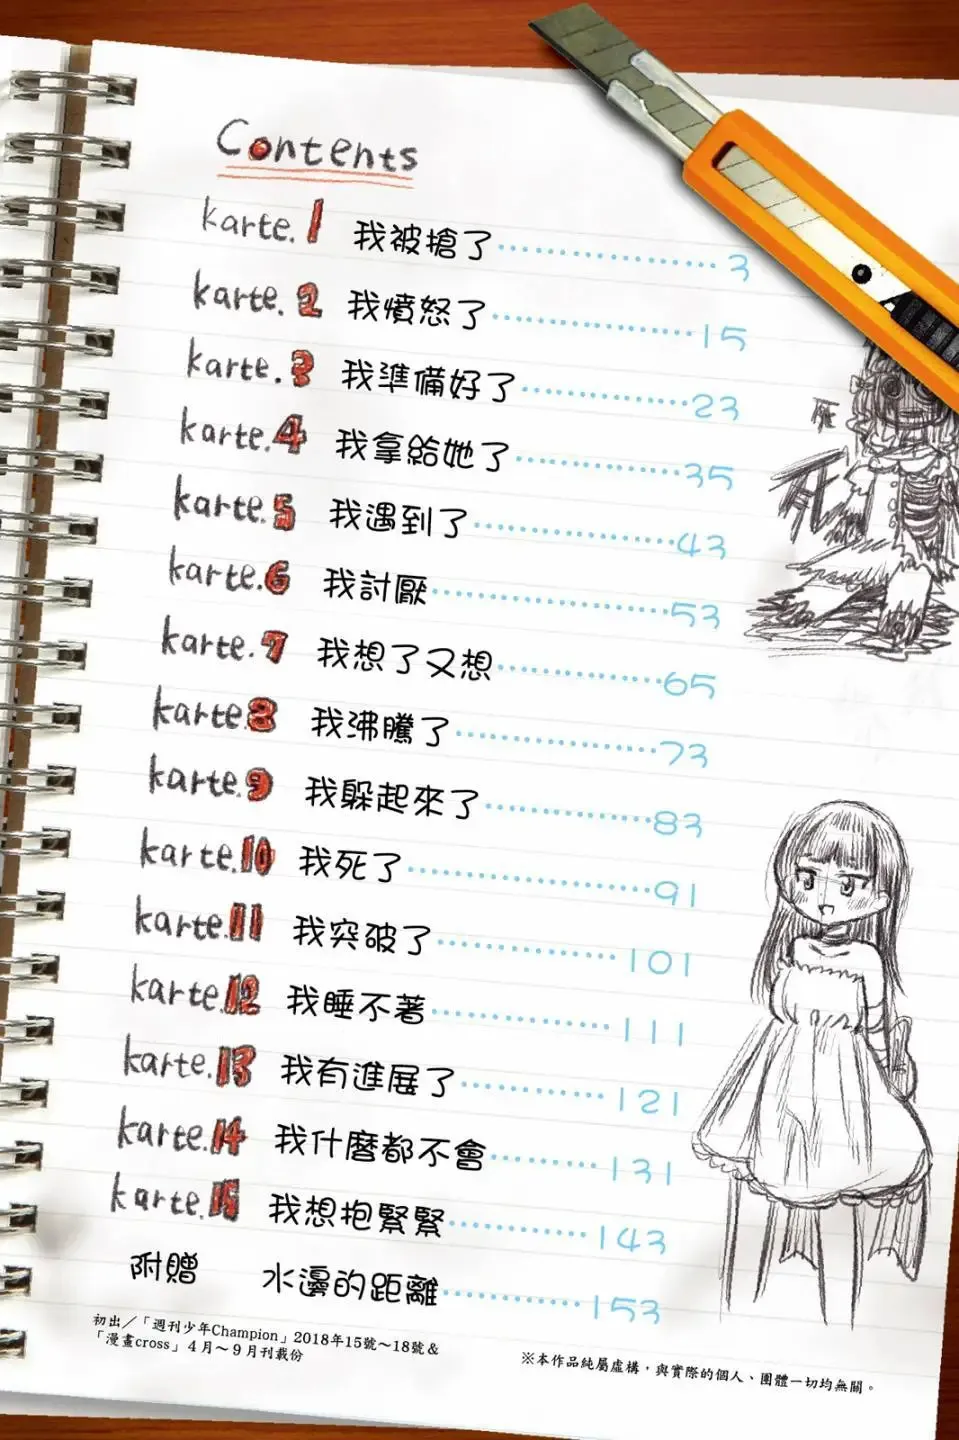 Contents
karte.1 我被搶了……………… 3
karte.2 我憤怒了………………15
karte.3 我準備好了……………23
karte.4 我拿給她了……………35
karte.5 我遇到了………………43
karte.6 我討厭…………………53
karte.7 我想了又想……………65
karte.8 我沸騰了………………73
karte.9 我躲起來了……………83
karte.10 我死了…………………91
karte.11 我突破了……………101
karte.12 我睡不著……………111
karte.13 我有進展了…………121
karte.14 我什麼都不會………131
karte.15 我想抱緊緊…………143
附贈 水邊的距離…………153
初出／「週刊少年Champion」2018年15號～18號＆
「漫畫cross」４月～９月刊載份
※本作品純屬虛構，與實際的個人、團體一切均無關。